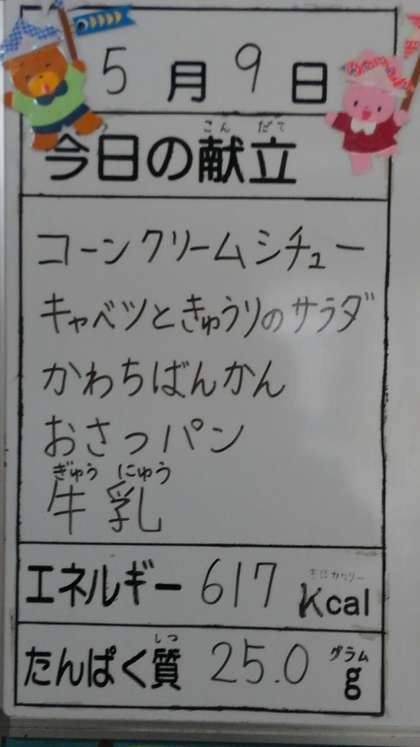 5月9日
こん だて
今日の献立
コーンクリームシチュー
キャベツときゅうりのサラダ
かわちばんかん
おさつパン
ぎゅう にゅう
牛乳
エネルギー 617 Kcal
しつ グラム
たんぱく質 25.0 g